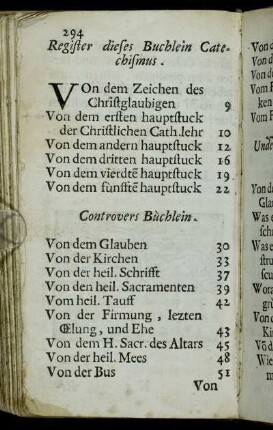 294
Register dieses Buchlein Cate-
chismus.
VOn dem Zeichen des
Christglaubigen 9
Von dem ersten hauptstuck
der Christlichen Cath. lehr 10
Von dem andern hauptstuck 12
Von dem dritten hauptstuck 16
Von dem vierdtē hauptstuck 19
Von dem fünfftē hauptstuck 22
Controvers Büchlein.
Von dem Glauben 30
Von der Kirchen 33
Von der heil. Schrifft 37
Von den heil. Sacramenten 39
Vom heil. Tauff 42
Von der Firmung, lezten
Œlung, und Ehe 43
Von dem H. Sacr. des Altars 45
Von der heil. Mees 48
Von der Bus 51
Von